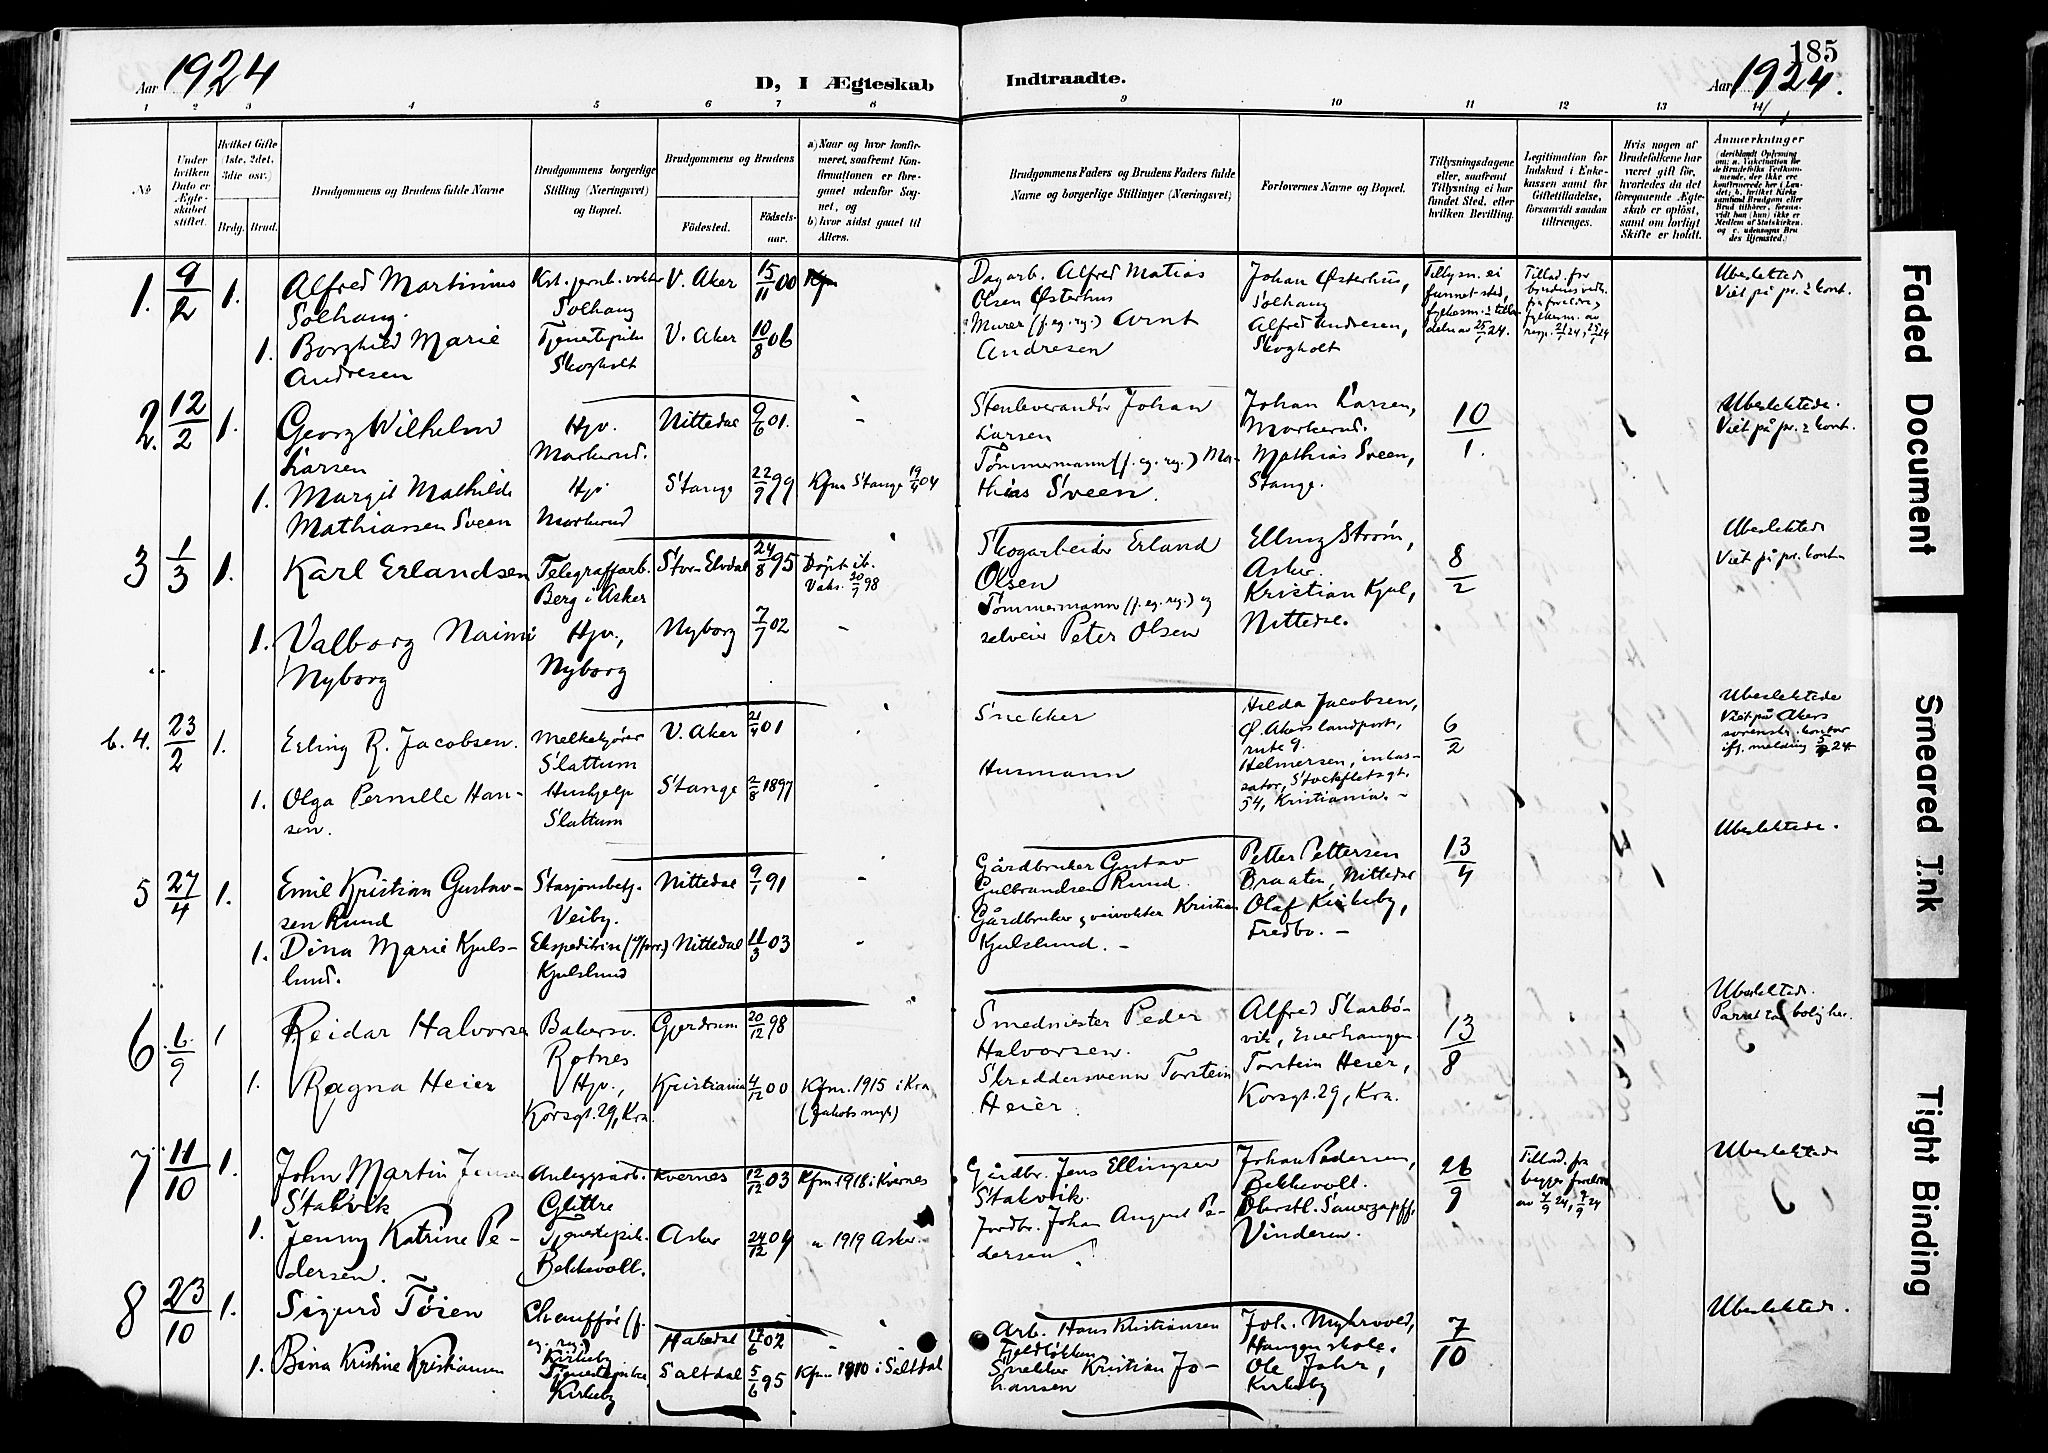 185
Aar 1924
D, I Ægteskab Indtraadte.
Aar 1924.
1 2 3 4 5 6 7 8 9 10 11 12 13 14
No
Under hvilken Dato er Ægteskabet stiftet.
Hvilket Gifte (1ste, 2det, 3die osv.)
Brdg. Brud.
Brudgommens og Brudens fulde Navne
Brudgommens borgerlige Stilling (Næringsvei) og Bopæl.
Brudgommens og Brudens
Fødested.
Fødselsaar.
a) Naar og hvor konfirmeret, saafremt Konfirmationen er foregaaet udenfor Sognet, og
b) hvor sidst gaaet til Alters.
Brudgommens Faders og Brudens Faders fulde Navne og borgerlige Stillinger (Næringsvei)
Forlovernes Navne og Bopæl.
Tillysningsdagene eller, saafremt Tillysning ei har fundet Sted, efter hvilken Bevilling.
Legitimation for Indskud i Enkekassen samt for Giftetilladelse, forsaavidt saadan tiltrænges.
Hvis nogen af Brudefolkene har været gift før, hvorledes da det foregaaende Ægteskab er opløst, samt om lovligt Skifte er holdt.
Anmærkninger
1. 9/2 1. Alfred Martinius Solhaug.
Kst. jernb. vokter Solhaug
V. Aker 15/11 00
Dagarb. Alfred Matias Olsen Østerhus
Johan Østerhus, Solhaug
Tillysn. ei funnet sted,
Ubeslektede
Viet på pr.s kont.
1. Borghild Marie Andresen
Tjenestepike Skogholt
V. Aker 10/8 06
Murer (f. eg. rg.) Arnt Andresen
Alfred Andresen, Skogholt
2. 12/2 1. Georg Wilhelm Larsen
Hjv. Markerud.
Nittedal 9/6 01.
Stenleverandør Johan Larsen
Johan Larsen, Markerud.
10/1.
Ubeslektede.
Viet på pr.s kont.
1. Margit Mathilde Mathiassen Sveen
Hjv. Markerud
Stange 22/9 99
Kfm Stange 19/4 04
Tømmermann (f. eg. rg.) Mathias Sveen.
Mathias Sveen, Stange.
3 1/3 1. Karl Erlandsen
Telegrafarb. Berg i Asker
Stor-Elvdal 24/8 95
Døpt ib. Vaks. 20/7 98
Skogarbeider Erland Olsen
Elling Strøm, Asker.
8/2
Ubeslektede
Viet på pr. kont.
1. Valborg Naimi Nyborg
Hjv., Nyborg
Nyborg 7/7 02
Tømmermann (f. eg. rg.) og selveier Peter Olsen
Kristian Kjul, Nittedal.
b. 4. 23/2 1. Erling R. Jacobsen.
Melkekjører Slattum
V. Aker 21/4 01
Snekker
Hilda Jacobsen, Ø. Akerslandpost, rute 9.
6/2
Ubeslektede
Viet på Akers sorenskr. kontor ifl. melding 5/7 24
1. Olga Pernille Hansen.
Hushjelp Slattum
Stange 2/8 1897
Husmann
Helmersen, inkassator, Stockfletsgt. 54, Kristiania.
5 27/4 1. Emil Kristian Gustavsen Rund
Stasjonsbetj. Veiby.
Nittedal 9/1 91
Gårdbruker Gustav Gulbrandsen Rund.
Petter Pettersen Braaten, Nittedal
13/4
Ubeslektede.
1. Dina Marie Kjulslund.
Ekspeditrise Kjulslund
Nittedal 11/3 03
Gårdbruker, veivokter Kristian Kjulslund.
Olaf Kirkeby, Fredbo.
6 6/9 1 Reidar Halvorsen
Bakersv. Rotnes
Gjerdrum 20/12 98
Smedmester Peder Halvorsen.
Alfred Skarbøvik, Enerhaugen
13/8
Ubeslektede.
1. Ragna Heier
Hjv., Korsgt. 29, Kra.
Kristiania 4/12 00
Kfm. 1915 i Kra (Jakobs mgh)
Skreddersvenn Torstein Heier.
Torstein Heier, Korsgt. 29, Kra.
7 11/10 1. John Martin Jensen Stakvik
Anleggsarb. Glittre
Kvernes 12/12 03
Kfm 1918 i Kvernes
Gårdbr. Jens Ellingsen Stakvik.
Johan Pedersen, Bekkevoll.
26/9
Tillad. fra begges foreldre av 7/9 24, 9/9 24
Ubeslektede
1. Jenny Katrine Pedersen.
Tjenestepik. Bekkevoll.
Asker 24/12 04
" 1919 Asker.
Jordbr. Johan August Pedersen
Oberstl. Sauerzapff, Vinderen.
8 23/10 1. Sigurd Tøien
Chauffør (f. eg. rg.) Kirkeby
Hakadal 02
Arb. Hans Kristiansen Fjeldløkken
Joh. Myhrvold, Haugen skole.
7/10
Ubeslektede.
1. Bina Kristine Kristiansen
Tjenestepike, Kirkeby
Saltdal 5/6 95
Kfm 1910 i Saltdal
Snekker Kristian Johansen
Ole Johr, Kirkeby
Faded Document
Smeared Ink
Tight Binding